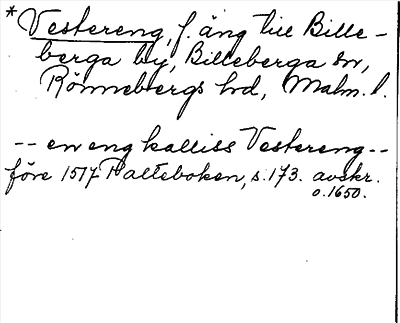 * Vestereng, f. äng till Bille-
berga by, Billeberga sn,
Rönnebergs hd, Malm. l.
-- en eng kalliss Vestereng --
före 1517 Palteboken, s. 173. avskr.
o. 1650.